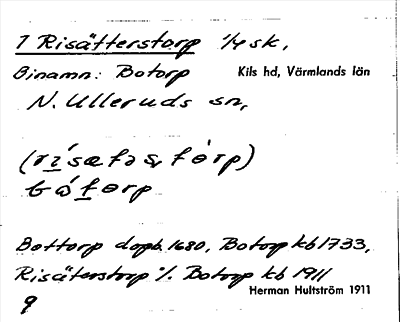 7 Risätterstorp 1/4 sk,
Binamn: Botorp Kils hd, Värmlands län
N. Ulleruds sn,
Bottorp dopb. 1680, Botorp kb 1733,
Risäterstorp %. Botorp kb 1911
Herman Hultström 1911
9